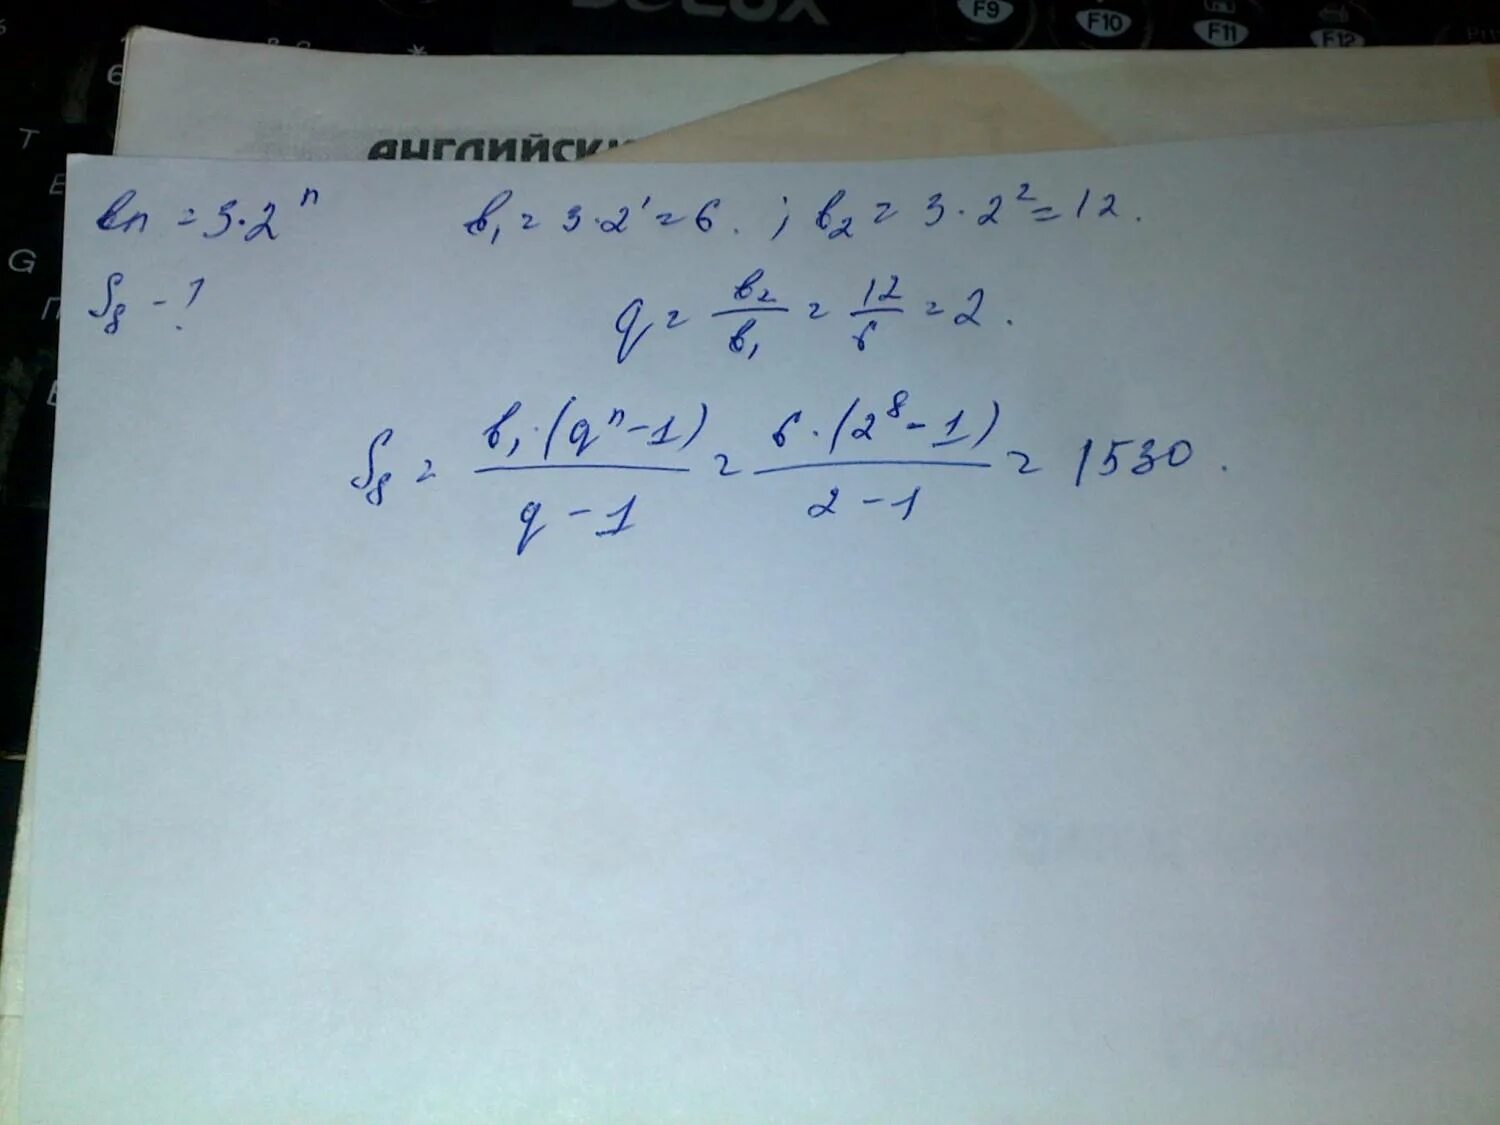 F9 F10 F11 F12
6 *
T
английск
G
bn = 3·2^n b₁ = 3·2¹ = 6. ; b₂ = 3·2² = 12.
S₈ - ?
q = b₂/b₁ = 12/6 = 2.
S₈ = b₁·(q^n - 1)/(q - 1) = 6·(2⁸ - 1)/(2 - 1) = 1530.